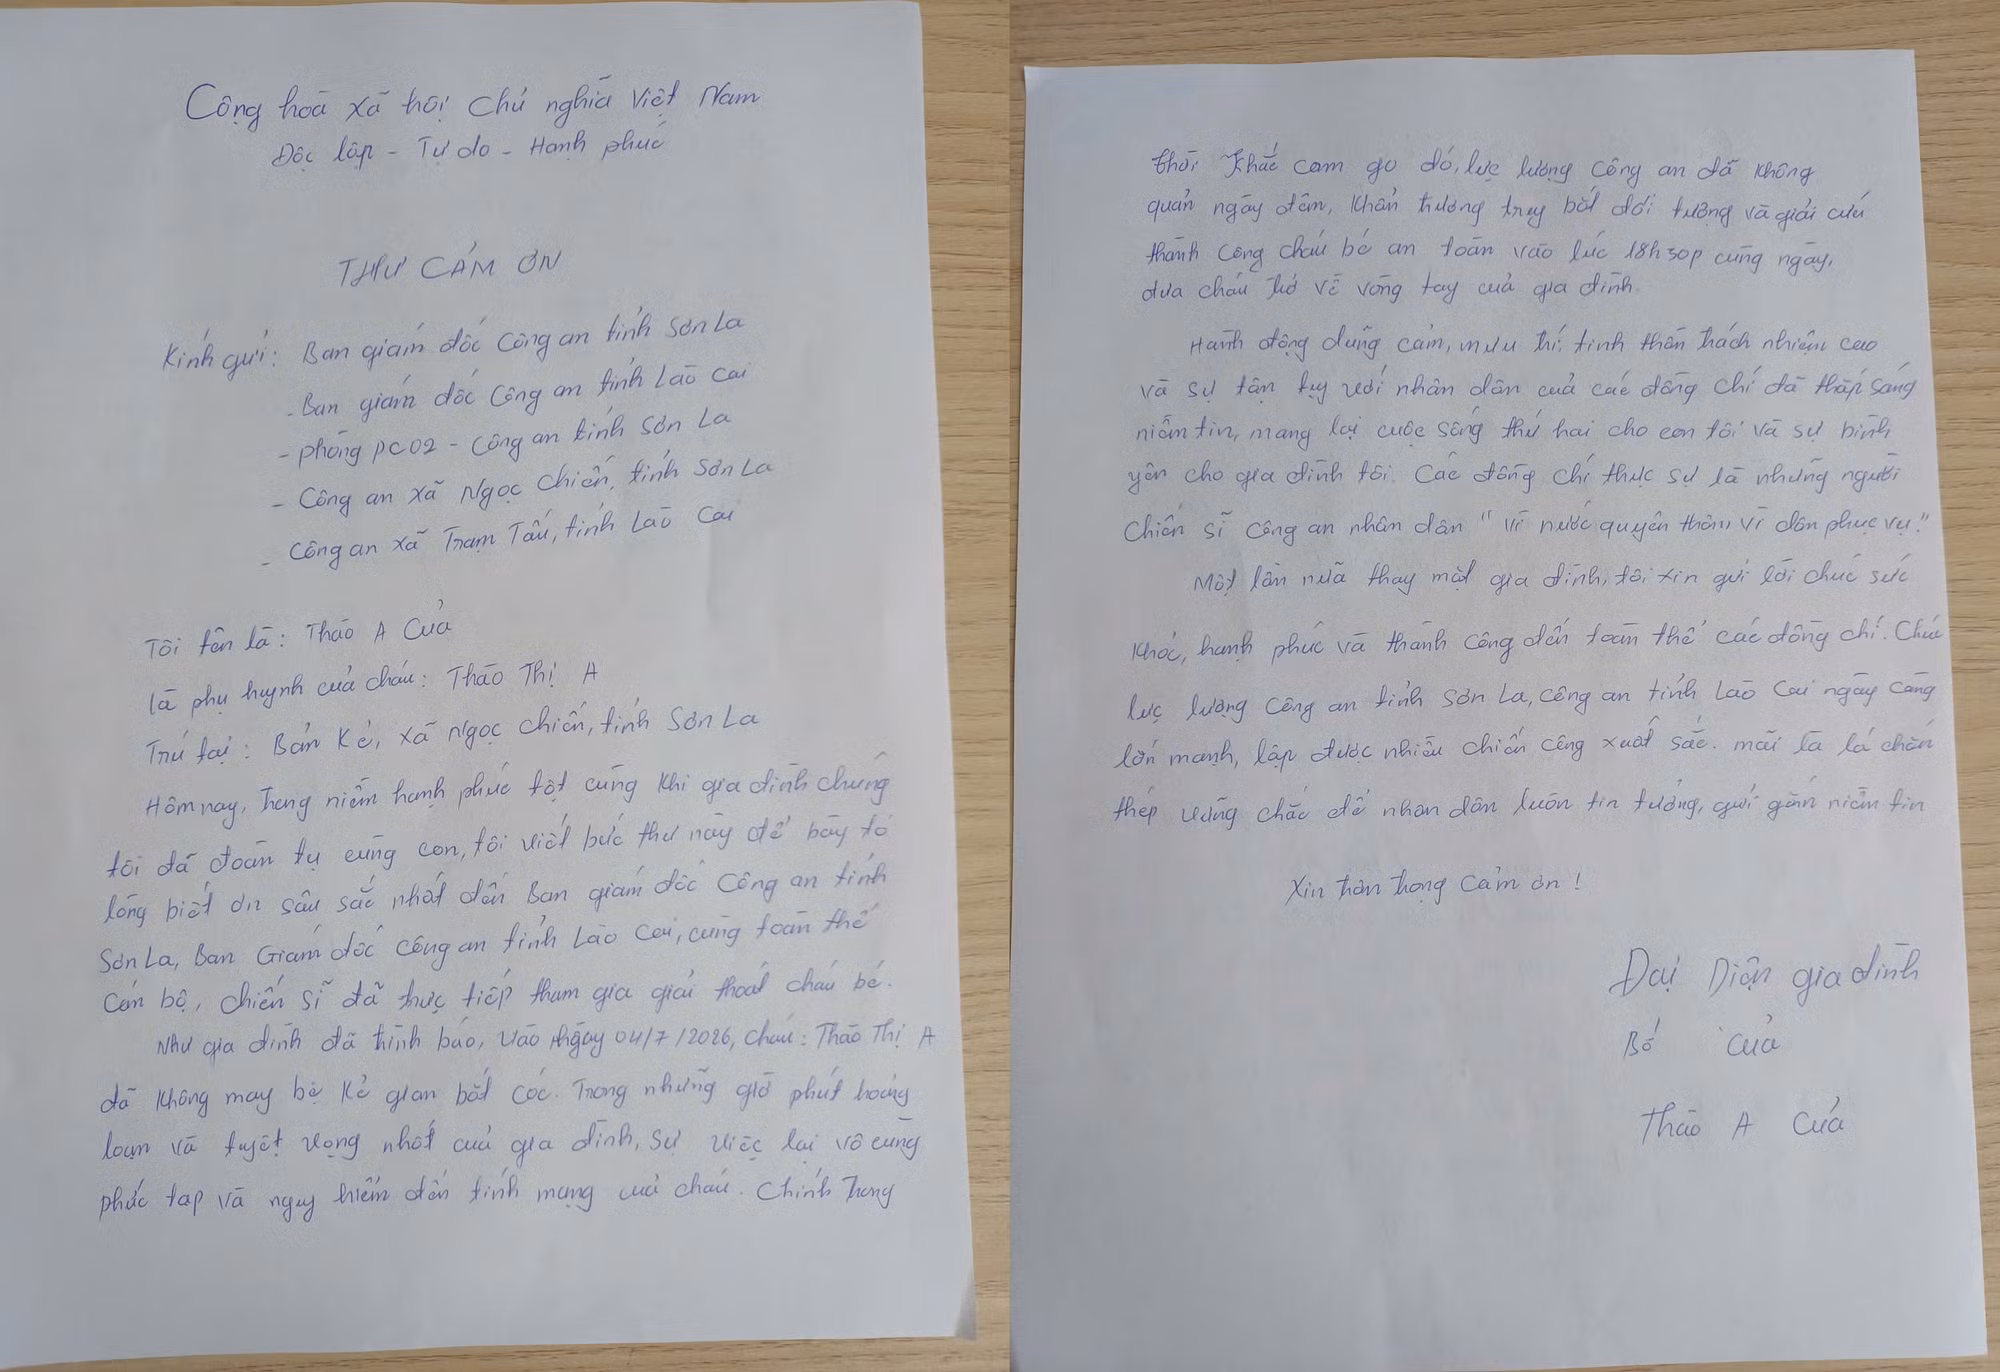 Cộng hoà xã hội chủ nghĩa Việt Nam
Độc lập - Tự do - Hạnh phúc
THƯ CẢM ƠN
Kính gửi: Ban giám đốc Công an tỉnh Sơn La
- Ban giám đốc Công an tỉnh Lào Cai
- phòng PC02 - Công an tỉnh Sơn La
- Công an xã Ngọc Chiến, tỉnh Sơn La
- Công an xã Trạm Tấu, tỉnh Lào Cai
Tôi tên là: Thào A Của
là phụ huynh của cháu: Thào Thị A
Trú tại: Bản Kẻ, xã Ngọc Chiến, tỉnh Sơn La
Hôm nay, trong niềm hạnh phúc tột cùng khi gia đình chúng
tôi đã đoàn tụ cùng con, tôi viết bức thư này để bày tỏ
lòng biết ơn sâu sắc nhất đến Ban giám đốc Công an tỉnh
Sơn La, Ban Giám đốc Công an tỉnh Lào Cai, cùng toàn thể
Cán bộ, chiến sĩ đã trực tiếp tham gia giải thoát cháu bé.
Như gia đình đã trình báo, vào ngày 04/7/2026, cháu: Thào Thị A
đã không may bị kẻ gian bắt cóc. Trong những giờ phút hoảng
loạn và tuyệt vọng nhất của gia đình, sự việc lại vô cùng
phức tạp và nguy hiểm đến tính mạng của cháu. Chính trong
thời khắc cam go đó, lực lượng Công an đã không
quản ngày đêm, khẩn trương truy bắt đối tượng và giải cứu
thành công cháu bé an toàn vào lúc 18h30p cùng ngày,
đưa cháu trở về vòng tay của gia đình.
Hành động dũng cảm, mưu trí, tinh thần trách nhiệm cao
và sự tận tụy với nhân dân của các đồng chí đã thắp sáng
niềm tin, mang lại cuộc sống thứ hai cho con tôi và sự bình
yên cho gia đình tôi. Các đồng chí thực sự là những người
Chiến sĩ Công an nhân dân "vì nước quyên thân, vì dân phục vụ."
Một lần nữa thay mặt gia đình, tôi xin gửi lời chúc sức
khỏe, hạnh phúc và thành công đến toàn thể các đồng chí. Chúc
lực lượng Công an tỉnh Sơn La, Công an tỉnh Lào Cai ngày càng
lớn mạnh, lập được nhiều chiến công xuất sắc. mãi là lá chắn
thép vững chắc để nhân dân luôn tin tưởng, gửi gắn niềm tin
Xin trân trọng cảm ơn!
Đại Diện gia đình
Bố Của
Thào A Của